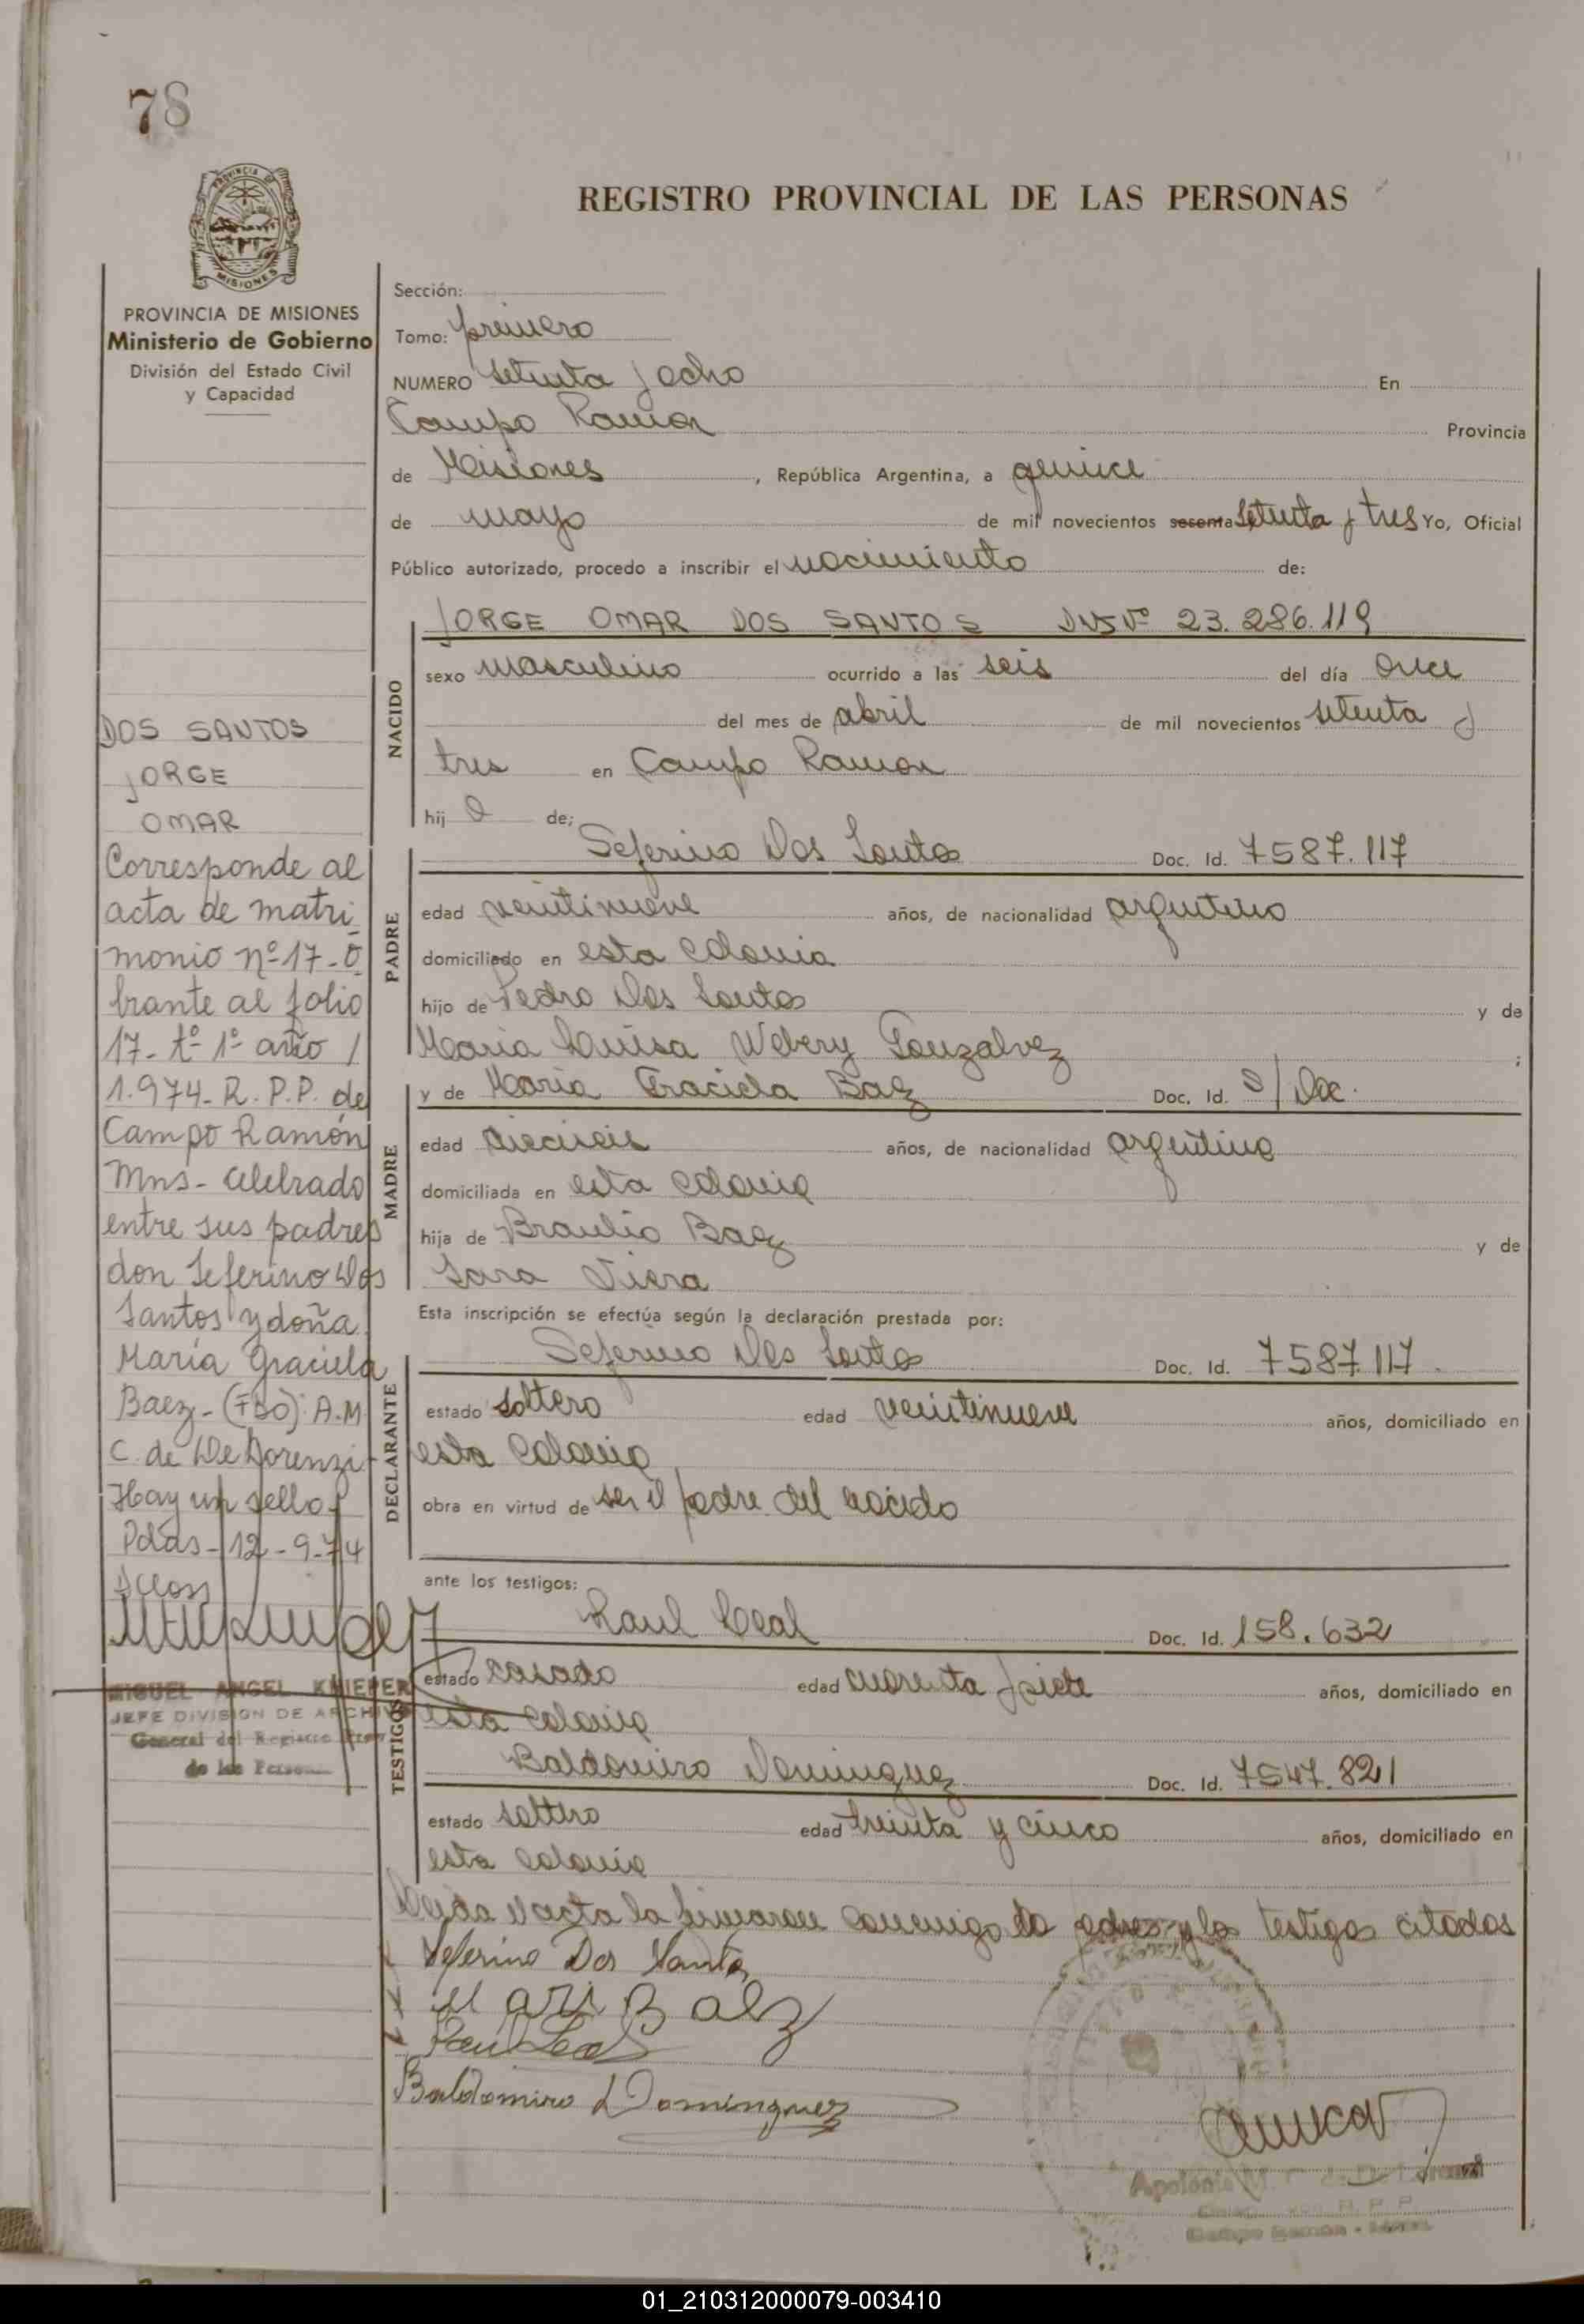 78
PROVINCIA DE
MISIONES
REGISTRO PROVINCIAL DE LAS PERSONAS
PROVINCIA DE MISIONES
Ministerio de Gobierno
División del Estado Civil
y Capacidad
DOS SANTOS
JORGE
OMAR
Corresponde al
acta de matri
monio nº 17-O
brante al folio
17- tº 1º año /
1.974- R. P. P. de
Campo Ramón
Mns- celebrado
entre sus padres
don Seferino Dos
Santos y doña
María Graciela
Baez- (FDO): A. M.
C. de De Lorenzi-
Hay un sello-
Pdas- 12-9-74
MIGUEL ANGEL KNIEPER
JEFE DIVISION DE ARCHIVO
General del Registro Prov
de las Person
Sección:
Tomo: primero
NUMERO setenta y ocho En
Campo Ramon Provincia
de Misiones, República Argentina, a quince
de mayo de mil novecientos sesenta setenta y tres Yo, Oficial
Público autorizado, procedo a inscribir el nacimiento de:
NACIDO
JORGE OMAR DOS SANTOS DNI Nº 23.286.119
sexo masculino ocurrido a las seis del día once
del mes de abril de mil novecientos setenta y
tres en Campo Ramon
hij o de:
PADRE
Seferino Dos Santos Doc. Id. 7587.117
edad veintinueve años, de nacionalidad argentino
domiciliado en esta colonia
hijo de Pedro Dos Santos y de
Maria Luisa Webery Gonzalvez ;
MADRE
y de Maria Graciela Baez Doc. Id. S/Doc.
edad dieciseis años, de nacionalidad argentina
domiciliada en esta colonia
hija de Braulio Baez y de
Sara Viera
Esta inscripción se efectúa según la declaración prestada por:
DECLARANTE
Seferino Dos Santos Doc. Id. 7587.117.
estado soltero edad veintinueve años, domiciliado en
esta colonia
obra en virtud de ser el padre del nacido
ante los testigos:
TESTIGOS
Raul Leal Doc. Id. 158.632
estado casado edad cuarenta y siete años, domiciliado en
esta colonia
Baldomiro Dominguez Doc. Id. 7547.821
estado soltero edad treinta y cinco años, domiciliado en
esta colonia
Leida el acta la firmaron conmigo los padres y los testigos citados
Seferino Dos Santos
Mari Baez
Raul Leal
Baldomiro Dominguez
Apolonia M. C. de De Lorenzi
R. P. P.
Campo Ramon - Mnes.
01_210312000079-003410